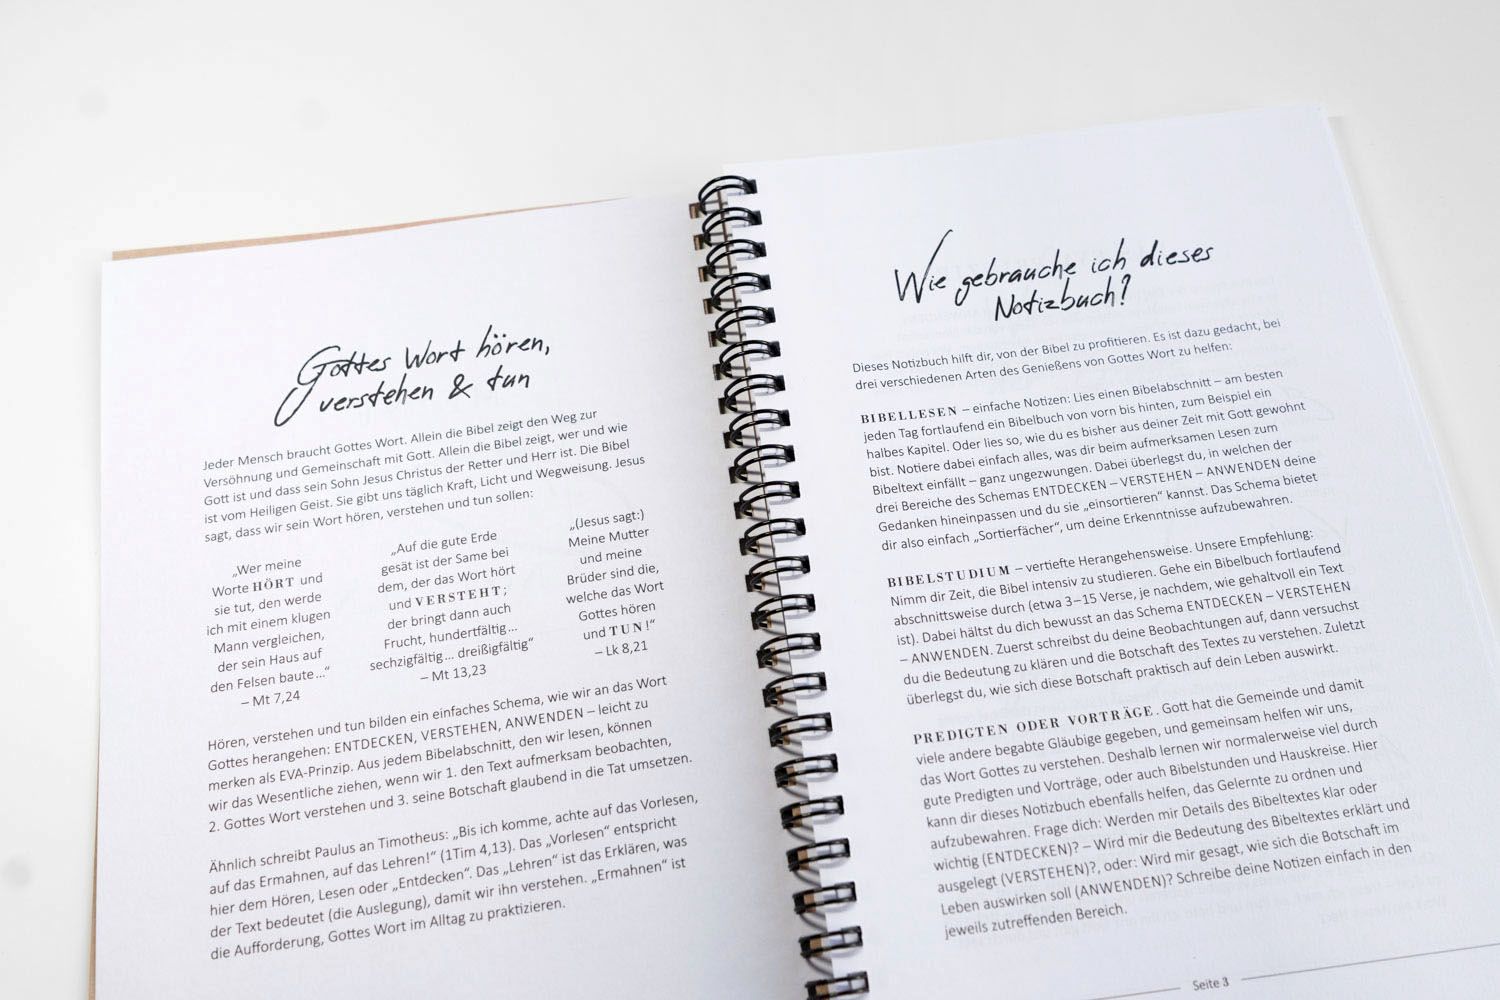 Gottes Wort hören,
verstehen & tun
Jeder Mensch braucht Gottes Wort. Allein die Bibel zeigt den Weg zur
Versöhnung und Gemeinschaft mit Gott. Allein die Bibel zeigt, wer und wie
Gott ist und dass sein Sohn Jesus Christus der Retter und Herr ist. Die Bibel
ist vom Heiligen Geist. Sie gibt uns täglich Kraft, Licht und Wegweisung. Jesus
sagt, dass wir sein Wort hören, verstehen und tun sollen:
„Wer meine
Worte HÖRT und
sie tut, den werde
ich mit einem klugen
Mann vergleichen,
der sein Haus auf
den Felsen baute…“
– Mt 7,24
„Auf die gute Erde
gesät ist der Same bei
dem, der das Wort hört
und VERSTEHT;
der bringt dann auch
Frucht, hundertfältig…
sechzigfältig… dreißigfältig“
– Mt 13,23
„(Jesus sagt:)
Meine Mutter
und meine
Brüder sind die,
welche das Wort
Gottes hören
und TUN!“
– Lk 8,21
Hören, verstehen und tun bilden ein einfaches Schema, wie wir an das Wort
Gottes herangehen: ENTDECKEN, VERSTEHEN, ANWENDEN – leicht zu
merken als EVA-Prinzip. Aus jedem Bibelabschnitt, den wir lesen, können
wir das Wesentliche ziehen, wenn wir 1. den Text aufmerksam beobachten,
2. Gottes Wort verstehen und 3. seine Botschaft glaubend in die Tat umsetzen.
Ähnlich schreibt Paulus an Timotheus: „Bis ich komme, achte auf das Vorlesen,
auf das Ermahnen, auf das Lehren!“ (1Tim 4,13). Das „Vorlesen“ entspricht
hier dem Hören, Lesen oder „Entdecken“. Das „Lehren“ ist das Erklären, was
der Text bedeutet (die Auslegung), damit wir ihn verstehen. „Ermahnen“ ist
die Aufforderung, Gottes Wort im Alltag zu praktizieren.
Wie gebrauche ich dieses
Notizbuch?
Dieses Notizbuch hilft dir, von der Bibel zu profitieren. Es ist dazu gedacht, bei
drei verschiedenen Arten des Genießens von Gottes Wort zu helfen:
BIBELLESEN – einfache Notizen: Lies einen Bibelabschnitt – am besten
jeden Tag fortlaufend ein Bibelbuch von vorn bis hinten, zum Beispiel ein
halbes Kapitel. Oder lies so, wie du es bisher aus deiner Zeit mit Gott gewohnt
bist. Notiere dabei einfach alles, was dir beim aufmerksamen Lesen zum
Bibeltext einfällt – ganz ungezwungen. Dabei überlegst du, in welchen der
drei Bereiche des Schemas ENTDECKEN – VERSTEHEN – ANWENDEN deine
Gedanken hineinpassen und du sie „einsortieren“ kannst. Das Schema bietet
dir also einfach „Sortierfächer“, um deine Erkenntnisse aufzubewahren.
BIBELSTUDIUM – vertiefte Herangehensweise. Unsere Empfehlung:
Nimm dir Zeit, die Bibel intensiv zu studieren. Gehe ein Bibelbuch fortlaufend
abschnittsweise durch (etwa 3–15 Verse, je nachdem, wie gehaltvoll ein Text
ist). Dabei hältst du dich bewusst an das Schema ENTDECKEN – VERSTEHEN
– ANWENDEN. Zuerst schreibst du deine Beobachtungen auf, dann versuchst
du die Bedeutung zu klären und die Botschaft des Textes zu verstehen. Zuletzt
überlegst du, wie sich diese Botschaft praktisch auf dein Leben auswirkt.
PREDIGTEN ODER VORTRÄGE. Gott hat die Gemeinde und damit
viele andere begabte Gläubige gegeben, und gemeinsam helfen wir uns,
das Wort Gottes zu verstehen. Deshalb lernen wir normalerweise viel durch
gute Predigten und Vorträge, oder auch Bibelstunden und Hauskreise. Hier
kann dir dieses Notizbuch ebenfalls helfen, das Gelernte zu ordnen und
aufzubewahren. Frage dich: Werden mir Details des Bibeltextes klar oder
wichtig (ENTDECKEN)? – Wird mir die Bedeutung des Bibeltextes erklärt und
ausgelegt (VERSTEHEN)?, oder: Wird mir gesagt, wie sich die Botschaft im
Leben auswirken soll (ANWENDEN)? Schreibe deine Notizen einfach in den
jeweils zutreffenden Bereich.
Seite 3